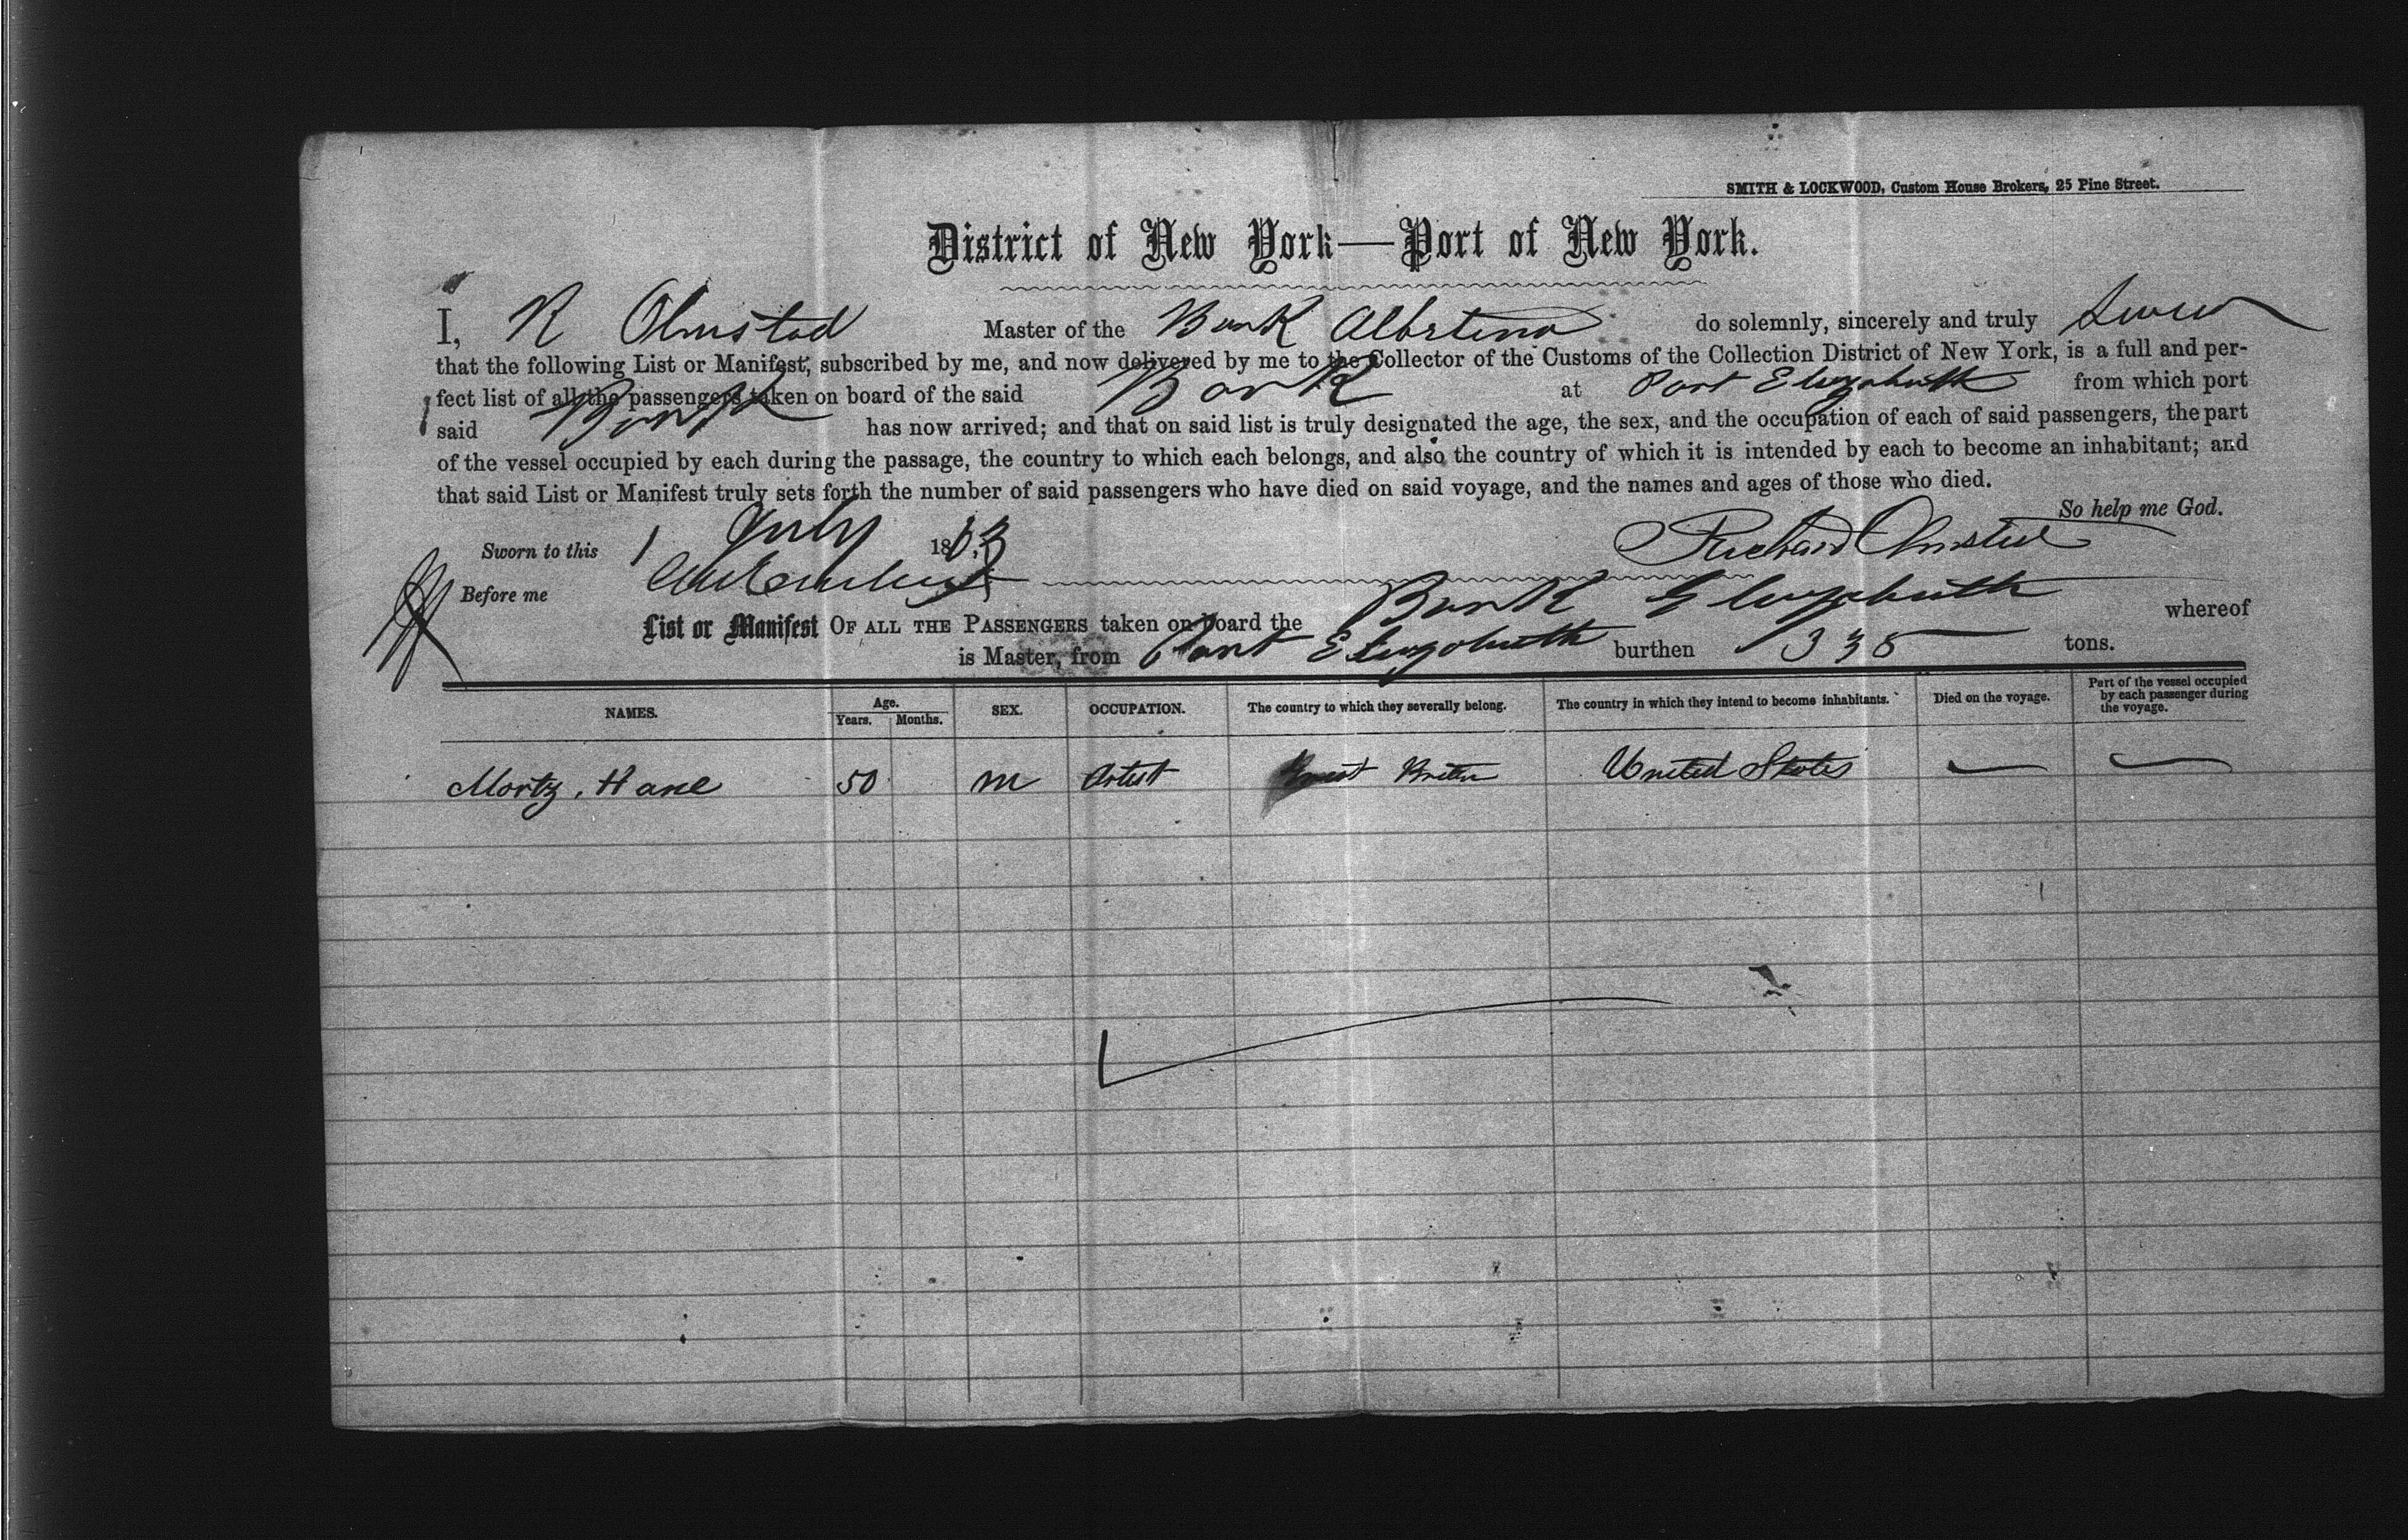 SMITH & LOCKWOOD, Custom House Brokers, 25 Pine Street.
District of New York—Port of New York.
I, R Olmstad Master of the Bark Albertina do solemnly, sincerely and truly Swear
that the following List or Manifest, subscribed by me, and now delivered by me to the Collector of the Customs of the Collection District of New York, is a full and per-
fect list of all the passengers taken on board of the said Bark at Port Elizabeth from which port
said Bark has now arrived; and that on said list is truly designated the age, the sex, and the occupation of each of said passengers, the part
of the vessel occupied by each during the passage, the country to which each belongs, and also the country of which it is intended by each to become an inhabitant; and
that said List or Manifest truly sets forth the number of said passengers who have died on said voyage, and the names and ages of those who died.
So help me God.
Sworn to this 1 July 18 Richard Olmsted
Before me
List or Manifest OF ALL THE PASSENGERS taken on board the Bark Elizabeth whereof
is Master, from Port Elizabeth burthen 338 tons.
NAMES. Age. Years. Months. SEX. OCCUPATION. The country to which they severally belong. The country in which they intend to become inhabitants. Died on the voyage. Part of the vessel occupied by each passenger during the voyage.
Mortz, Hane 50 M Artist Great Britain United States — —